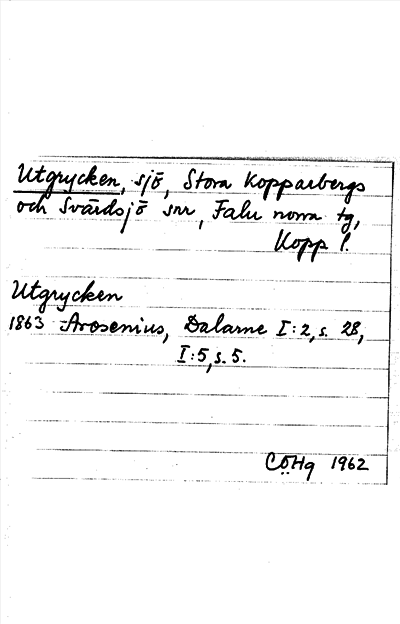 Utgrycken, sjö, Stora Kopparbergs
och Svärdsjö snr, Falu norra tg,
Kopp l.
Utgrycken
1863 Arosenius, Dalarne I:2, s. 28,
I:5, s. 5.
CÖHg 1962